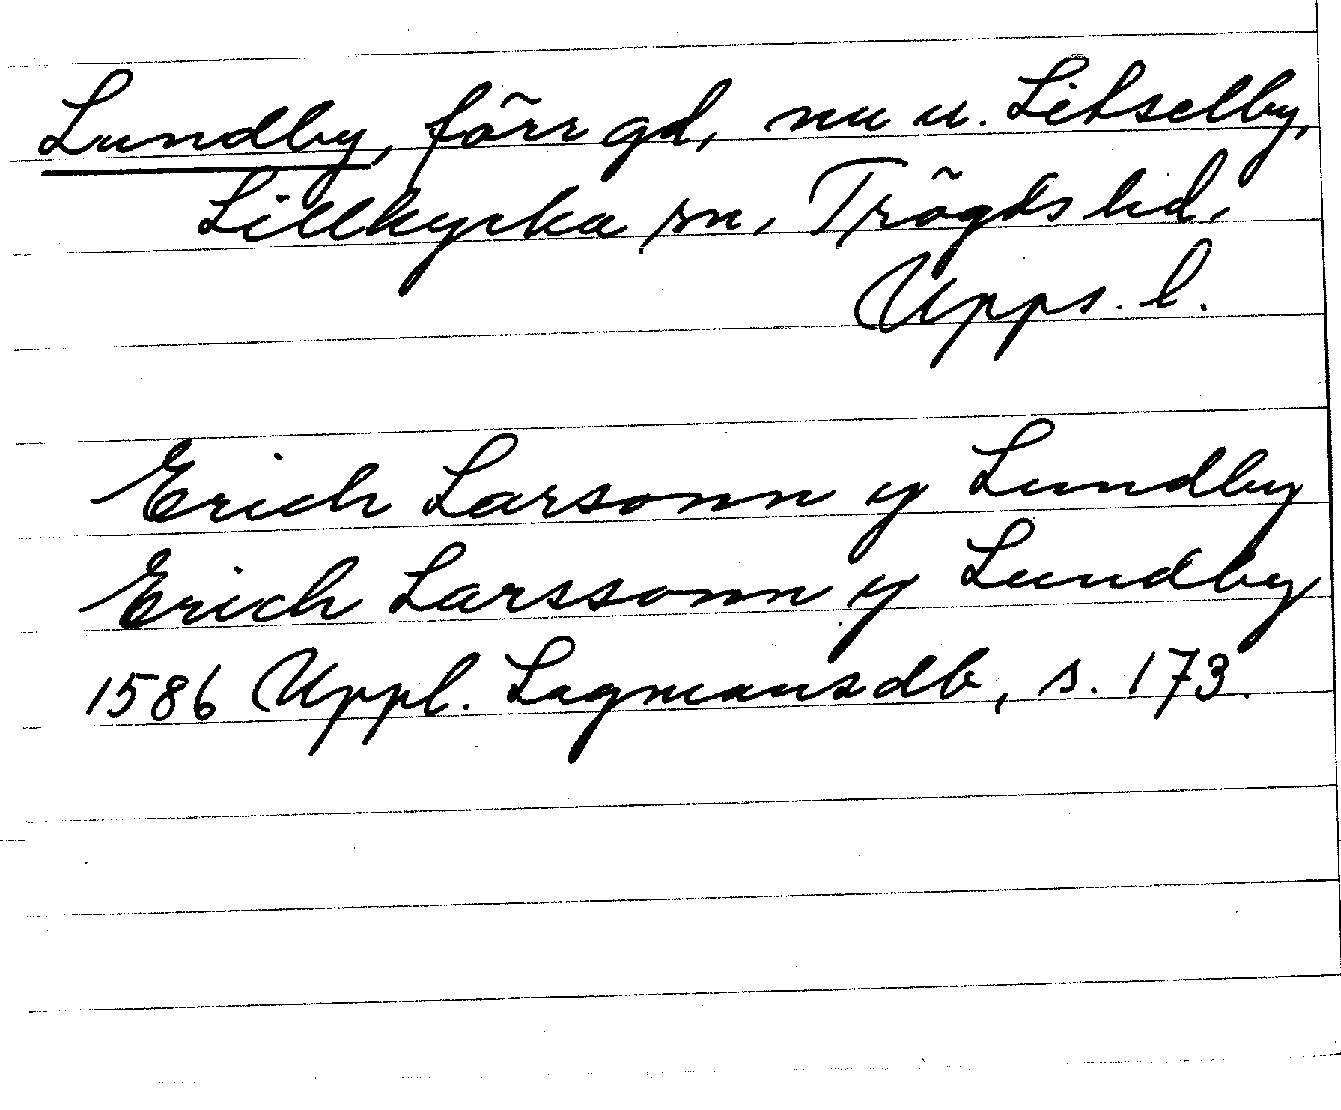 Lundby, förr gd, nu u. Litselby,
Lillkyrka sn, Trögds hd,
Upps. l.
Erich Larsonn y Lundby
Erich Larssonn y Lundby
1586 Uppl. Lagmansdb, s. 173.